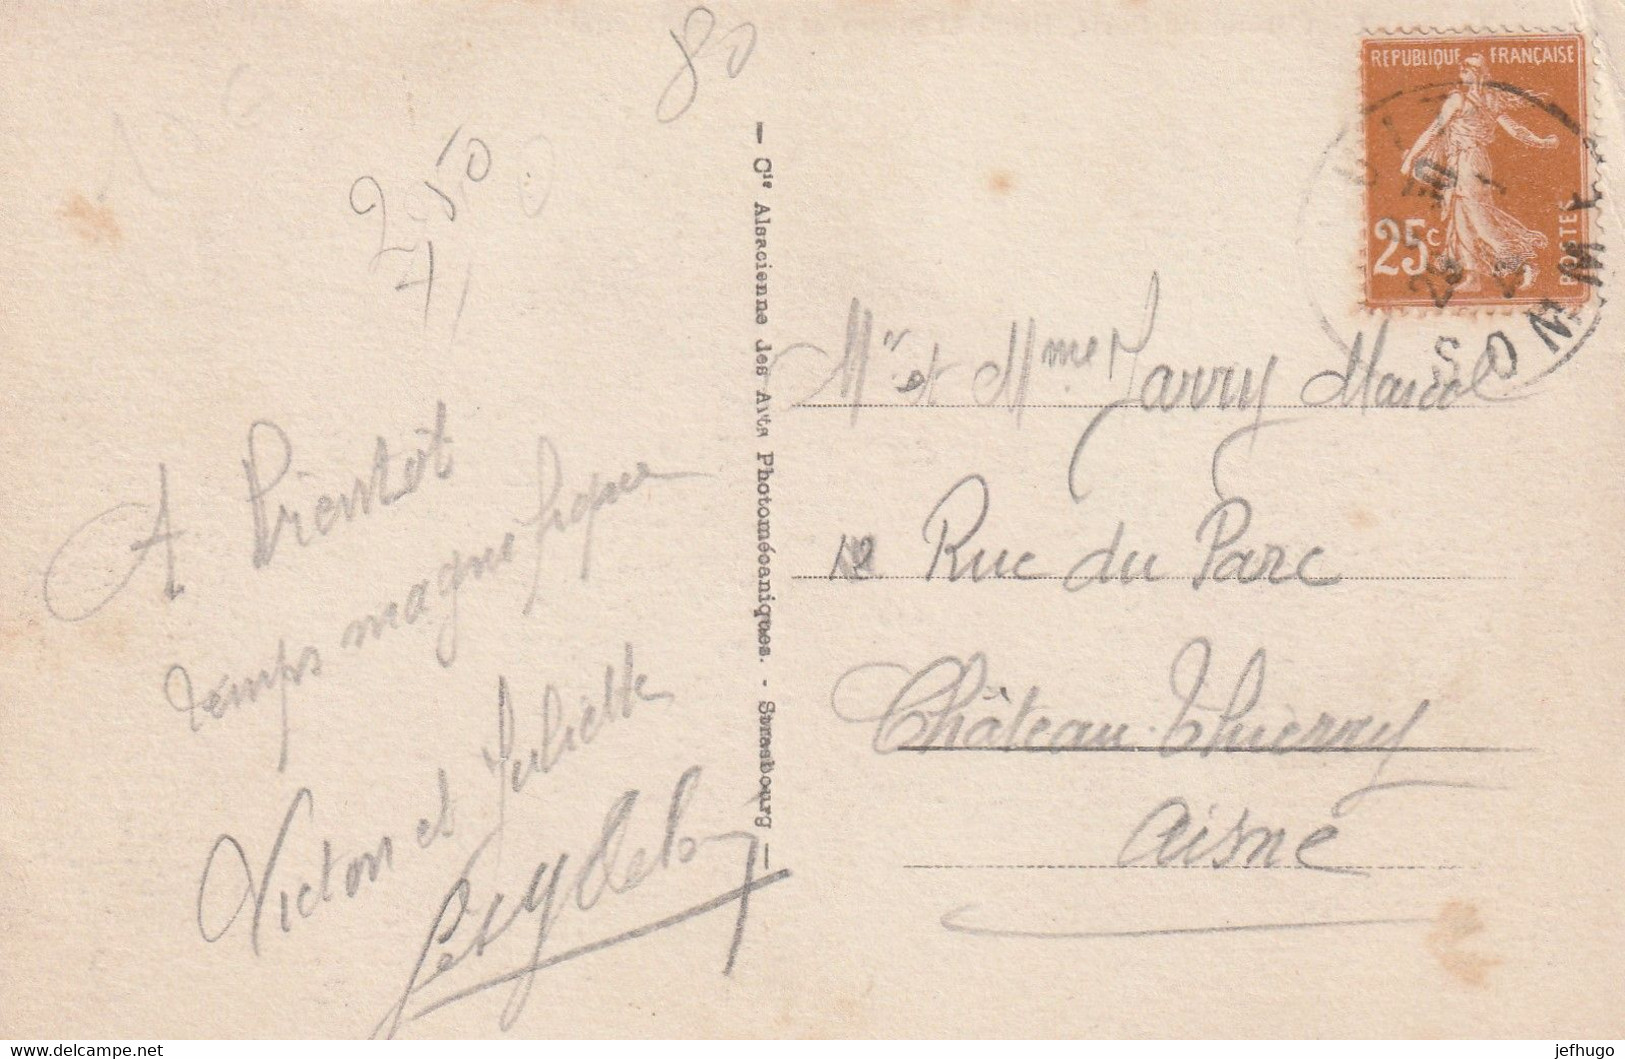 80
2,50
A bientôt
temps magnifique
Victor et Juliette
— Cie Alsacienne des Arts Photomécaniques. - Strasbourg —
REPUBLIQUE FRANÇAISE
25c
POSTES
SOMME
Mr et Mme Jarry Marcel
12 Rue du Parc
Château-Thierry
Aisne
www.delcampe.net
jefhugo